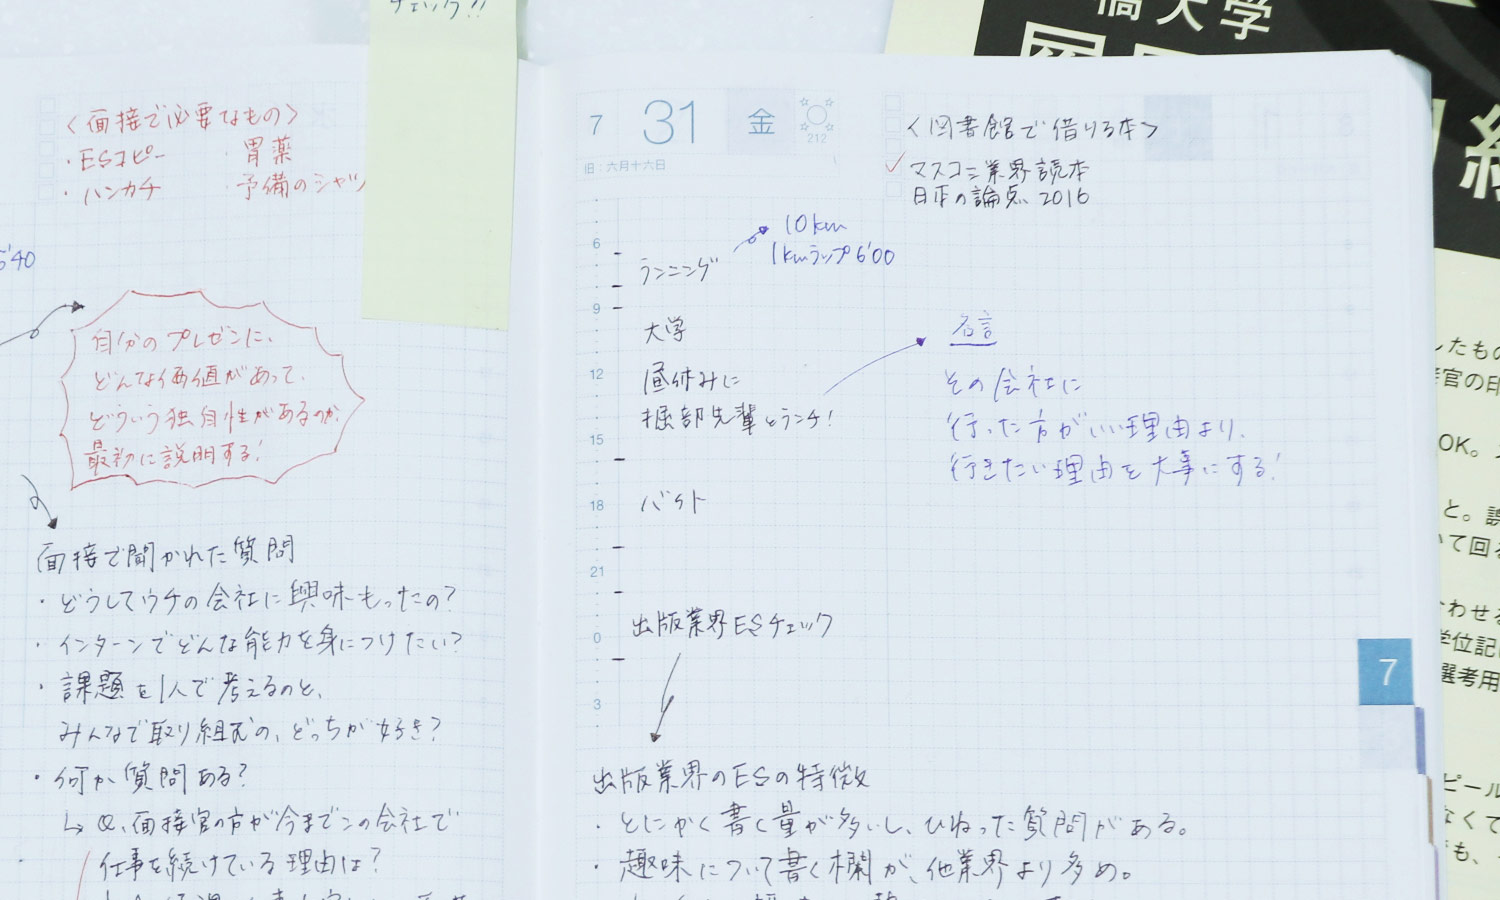 チェック!!
<面接で必要なもの>
・ESコピー ・胃薬
・ハンカチ ・予備のシャツ
5'40
自分のプレゼンに、
どんな価値があって、
どういう独自性があるのか
最初に説明する!
面接で聞かれた質問
・どうしてウチの会社に興味もったの?
・インターンでどんな能力を身につけたい?
・課題を1人で考えるのと、
みんなで取り組むの、どっちが好き?
・何か質問ある?
↳ Q、面接官の方が今までこの会社で
仕事を続けている理由は?
7 31 金
212
旧:六月十六日
<図書館で借りる本>
✓マスコミ業界読本
日本の論点 2016
6
ランニング
10km
1kmラップ6'00
9
大学
12
昼休みに
堀部先輩とランチ!
名言
その会社に
行った方がいい理由より、
行きたい理由を大事にする!
15
18
バイト
21
0
出版業界ESチェック
3
出版業界のESの特徴
・とにかく書く量が多いし、ひねった質問がある。
・趣味について書く欄が、他業界より多め。
7
橋大学
したもの
OK。
と。誤
いて回る
合わせる
学位記
選考用
ピール
なくて
でも、